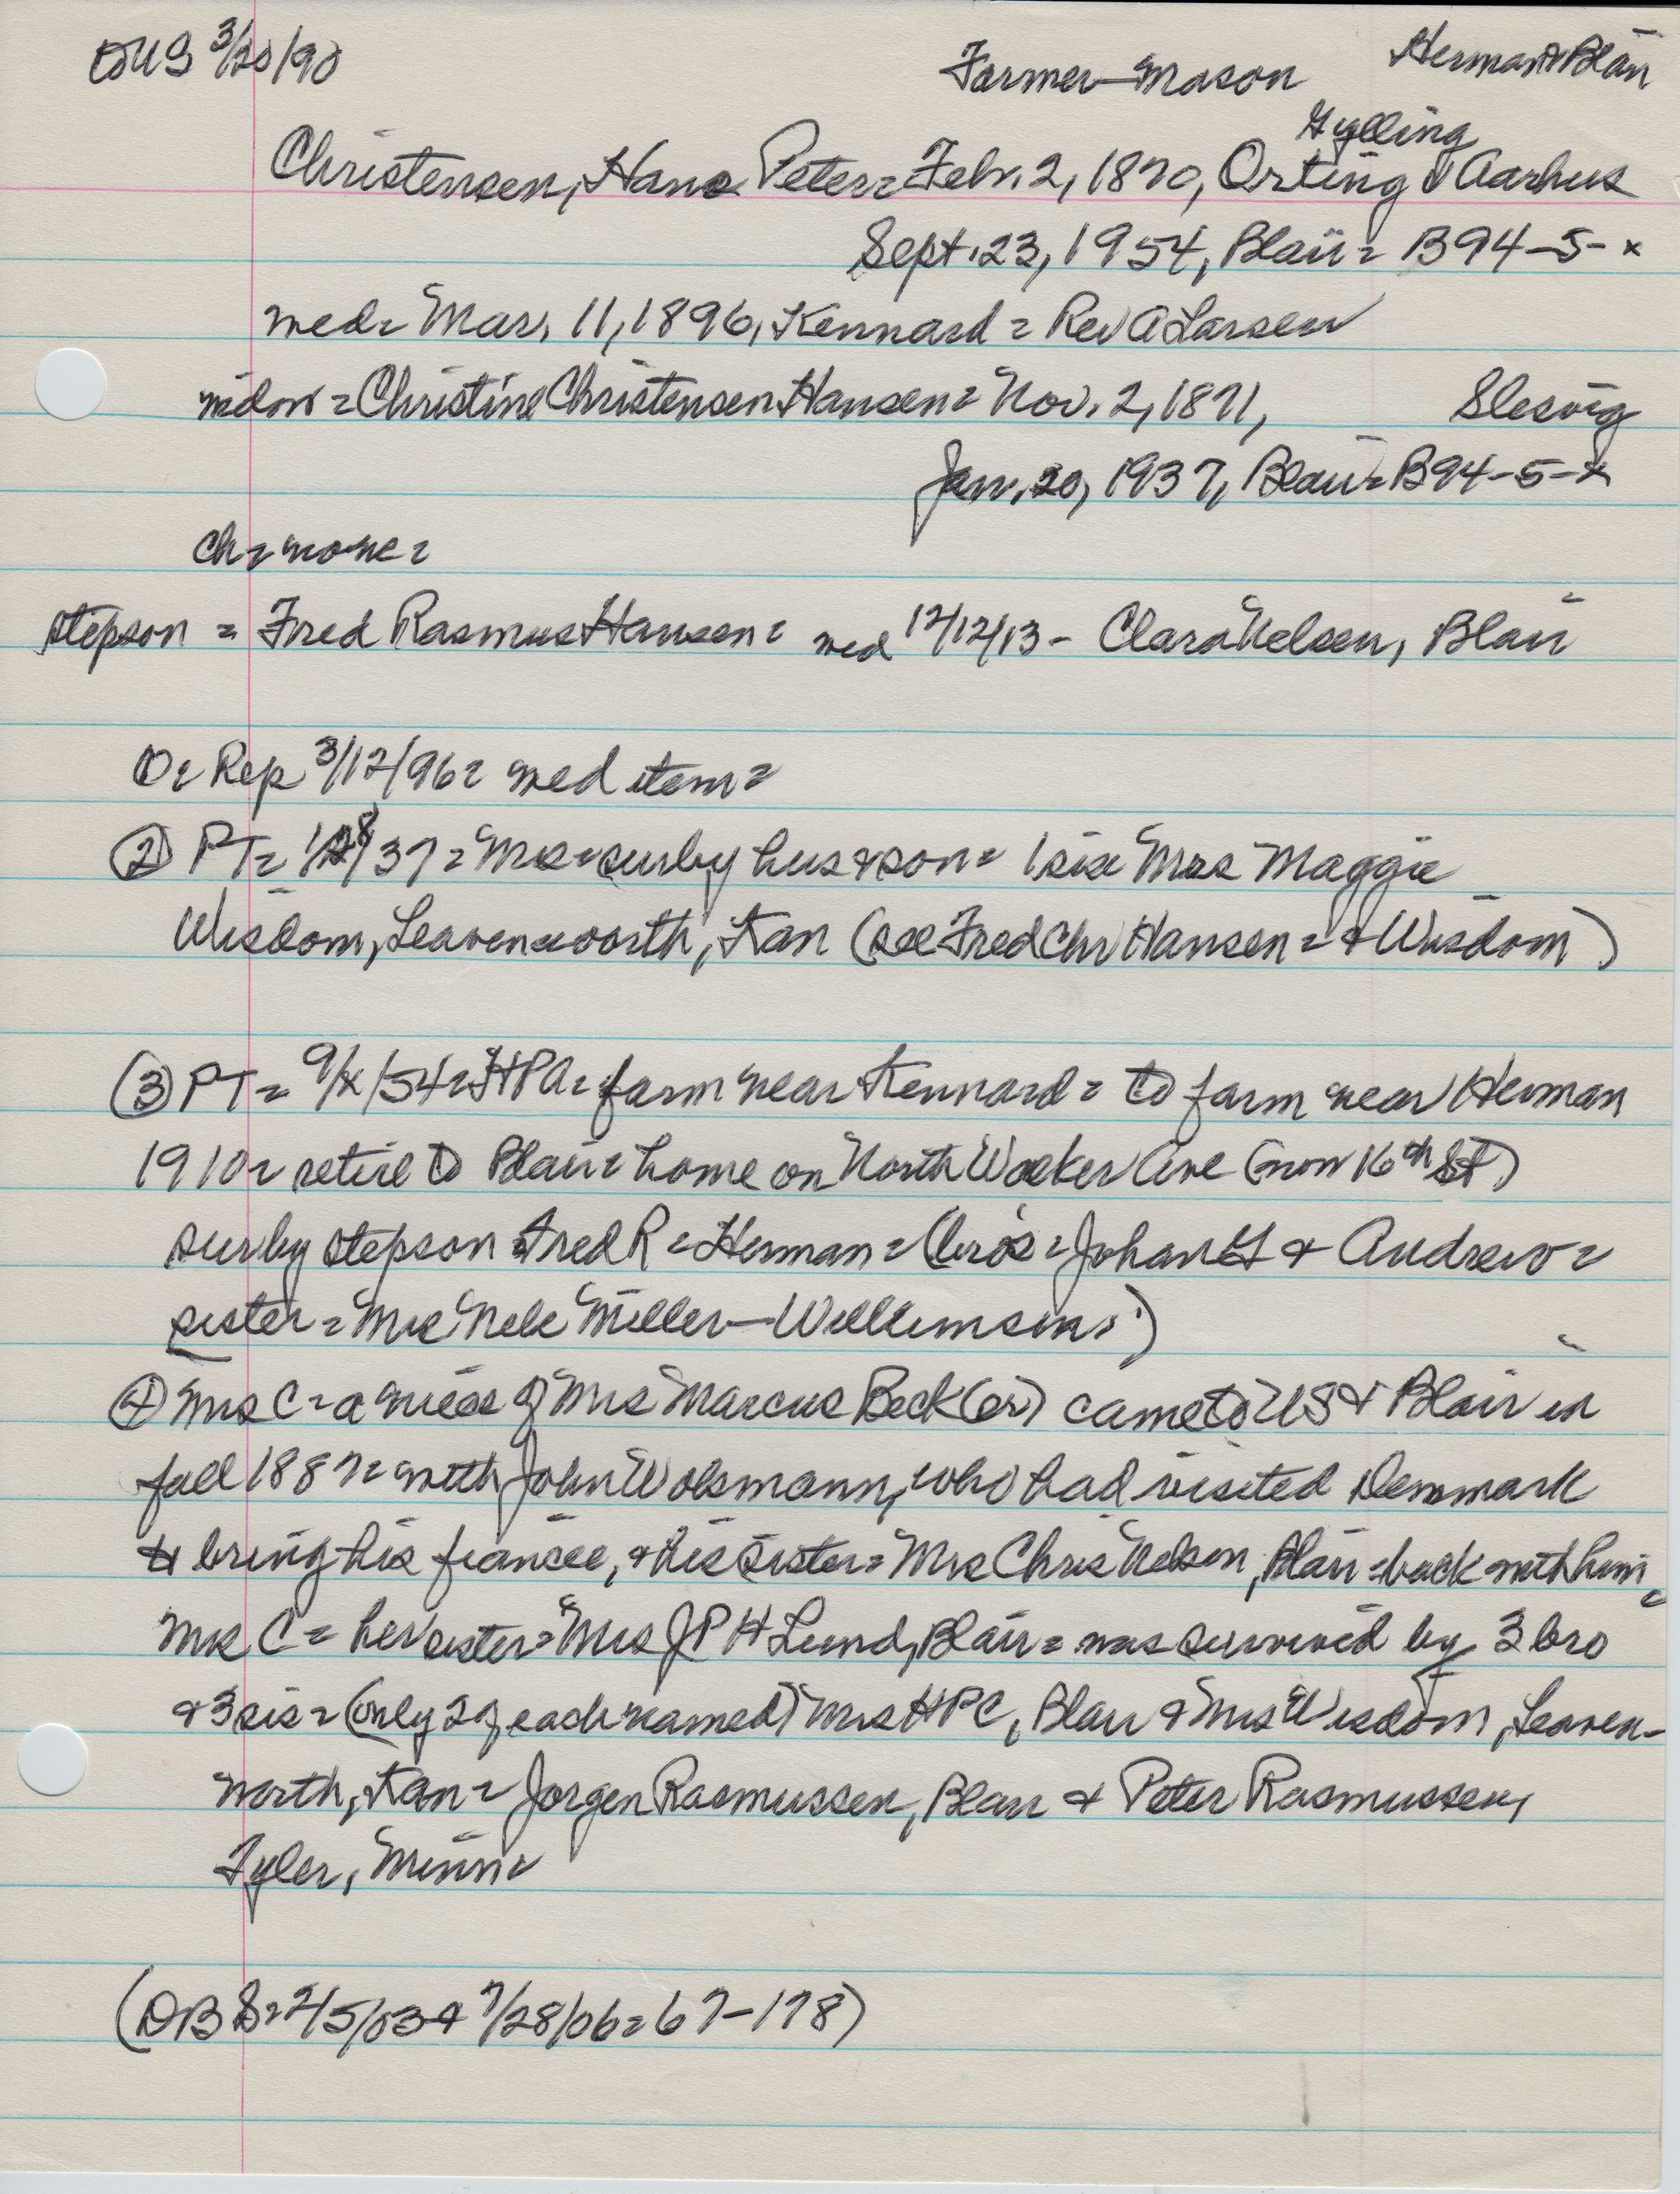 3/20/90 Farmer-Mason Herman & Blair
Gylling
Christensen, Hans Peter = Feb. 2, 1870, Orting & Aarhus
Sept. 23, 1954, Blair = B94-5-x
med = Mar. 11, 1896, Kennard = Rev A Larsen
widow = Christine Christensen Hansen = Nov. 2, 1871, Slesvig
Jan. 20, 1937, Blair = B94-5-x
Ch = none =
stepson = Fred Rasmus Hansen = med 12/12/13 - Clara Nelsen, Blair
Rep 3/12/96 = med item =
(2) PT = 37 = Mrs = sur by hus & son = 1 sis = Mrs Maggie
Wisdom, Leavenworth, Kan (see Fred Chr Hansen = & Wisdom)
(3) PT = 9/x/54 = farm near Kennard = to farm near Herman
1910 = retire to Blair = home on North Walker Ave (now 16th St)
sur by stepson Fred R = Herman = (bros = Johan & Andrew =
sister = Mrs Nels Miller - Williamson.)
(4) Mrs C = a niece of Mrs Marcus Beck (er) came to US & Blair in
fall 1887 = with John Wolsmann, who had visited Denmark
to bring his fiancee, & his sister = Mrs Chris Nelson, Blair = back with him =
Mrs C = her sister = Mrs J P H Lund, Blair = was survived by 3 bro
& 3 sis = (only 2 of each named) Mrs HPC, Blair & Mrs Wisdom, Leaven-
worth, Kan = Jorgen Rasmussen, Blair & Peter Rasmussen,
Tyler, Minn =
(DB S = 2/5/03 & 7/28/06 = 67-178)